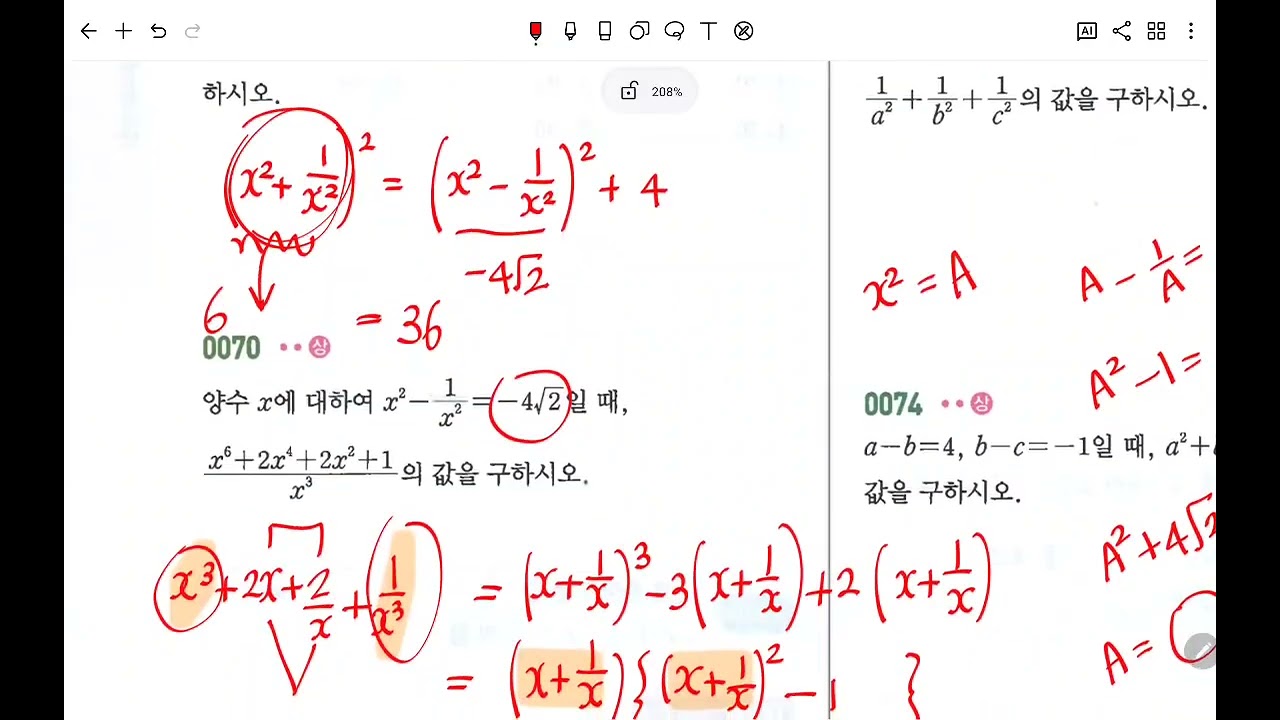 208%
하시오.
(x² + 1/x²)² = (x² - 1/x²)² + 4
-4√2
6
= 36
0070 •• 상
양수 x에 대하여 x² - 1/x² = -4√2일 때,
(x⁶+2x⁴+2x²+1)/x³ 의 값을 구하시오.
x³ + 2x + 2/x + 1/x³ = (x + 1/x)³ - 3(x + 1/x) + 2(x + 1/x)
= (x + 1/x){(x + 1/x)² - 1 }
1/a² + 1/b² + 1/c² 의 값을 구하시오.
x² = A
A - 1/A =
A² - 1 =
0074 •• 상
a-b=4, b-c=-1일 때, a²+
값을 구하시오.
A² + 4√2
A =
AI